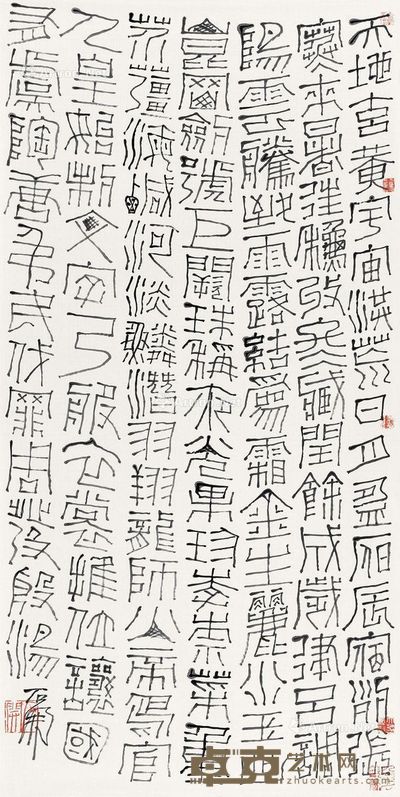 天地玄黃宇宙洪荒日月盈昃辰宿列張
寒來暑往秋收冬藏閏餘成歲律呂調
陽雲騰致雨露結爲霜金生麗水玉
崑岡劍號巨闕珠稱夜光果珍李柰菜重
芥薑海鹹河淡鱗潛羽翔龍師火帝鳥官
人皇始制文字乃服衣裳推位讓國
有虞陶唐弔民伐罪周發殷湯
石開
卓克艺术网
zhuokearts.com